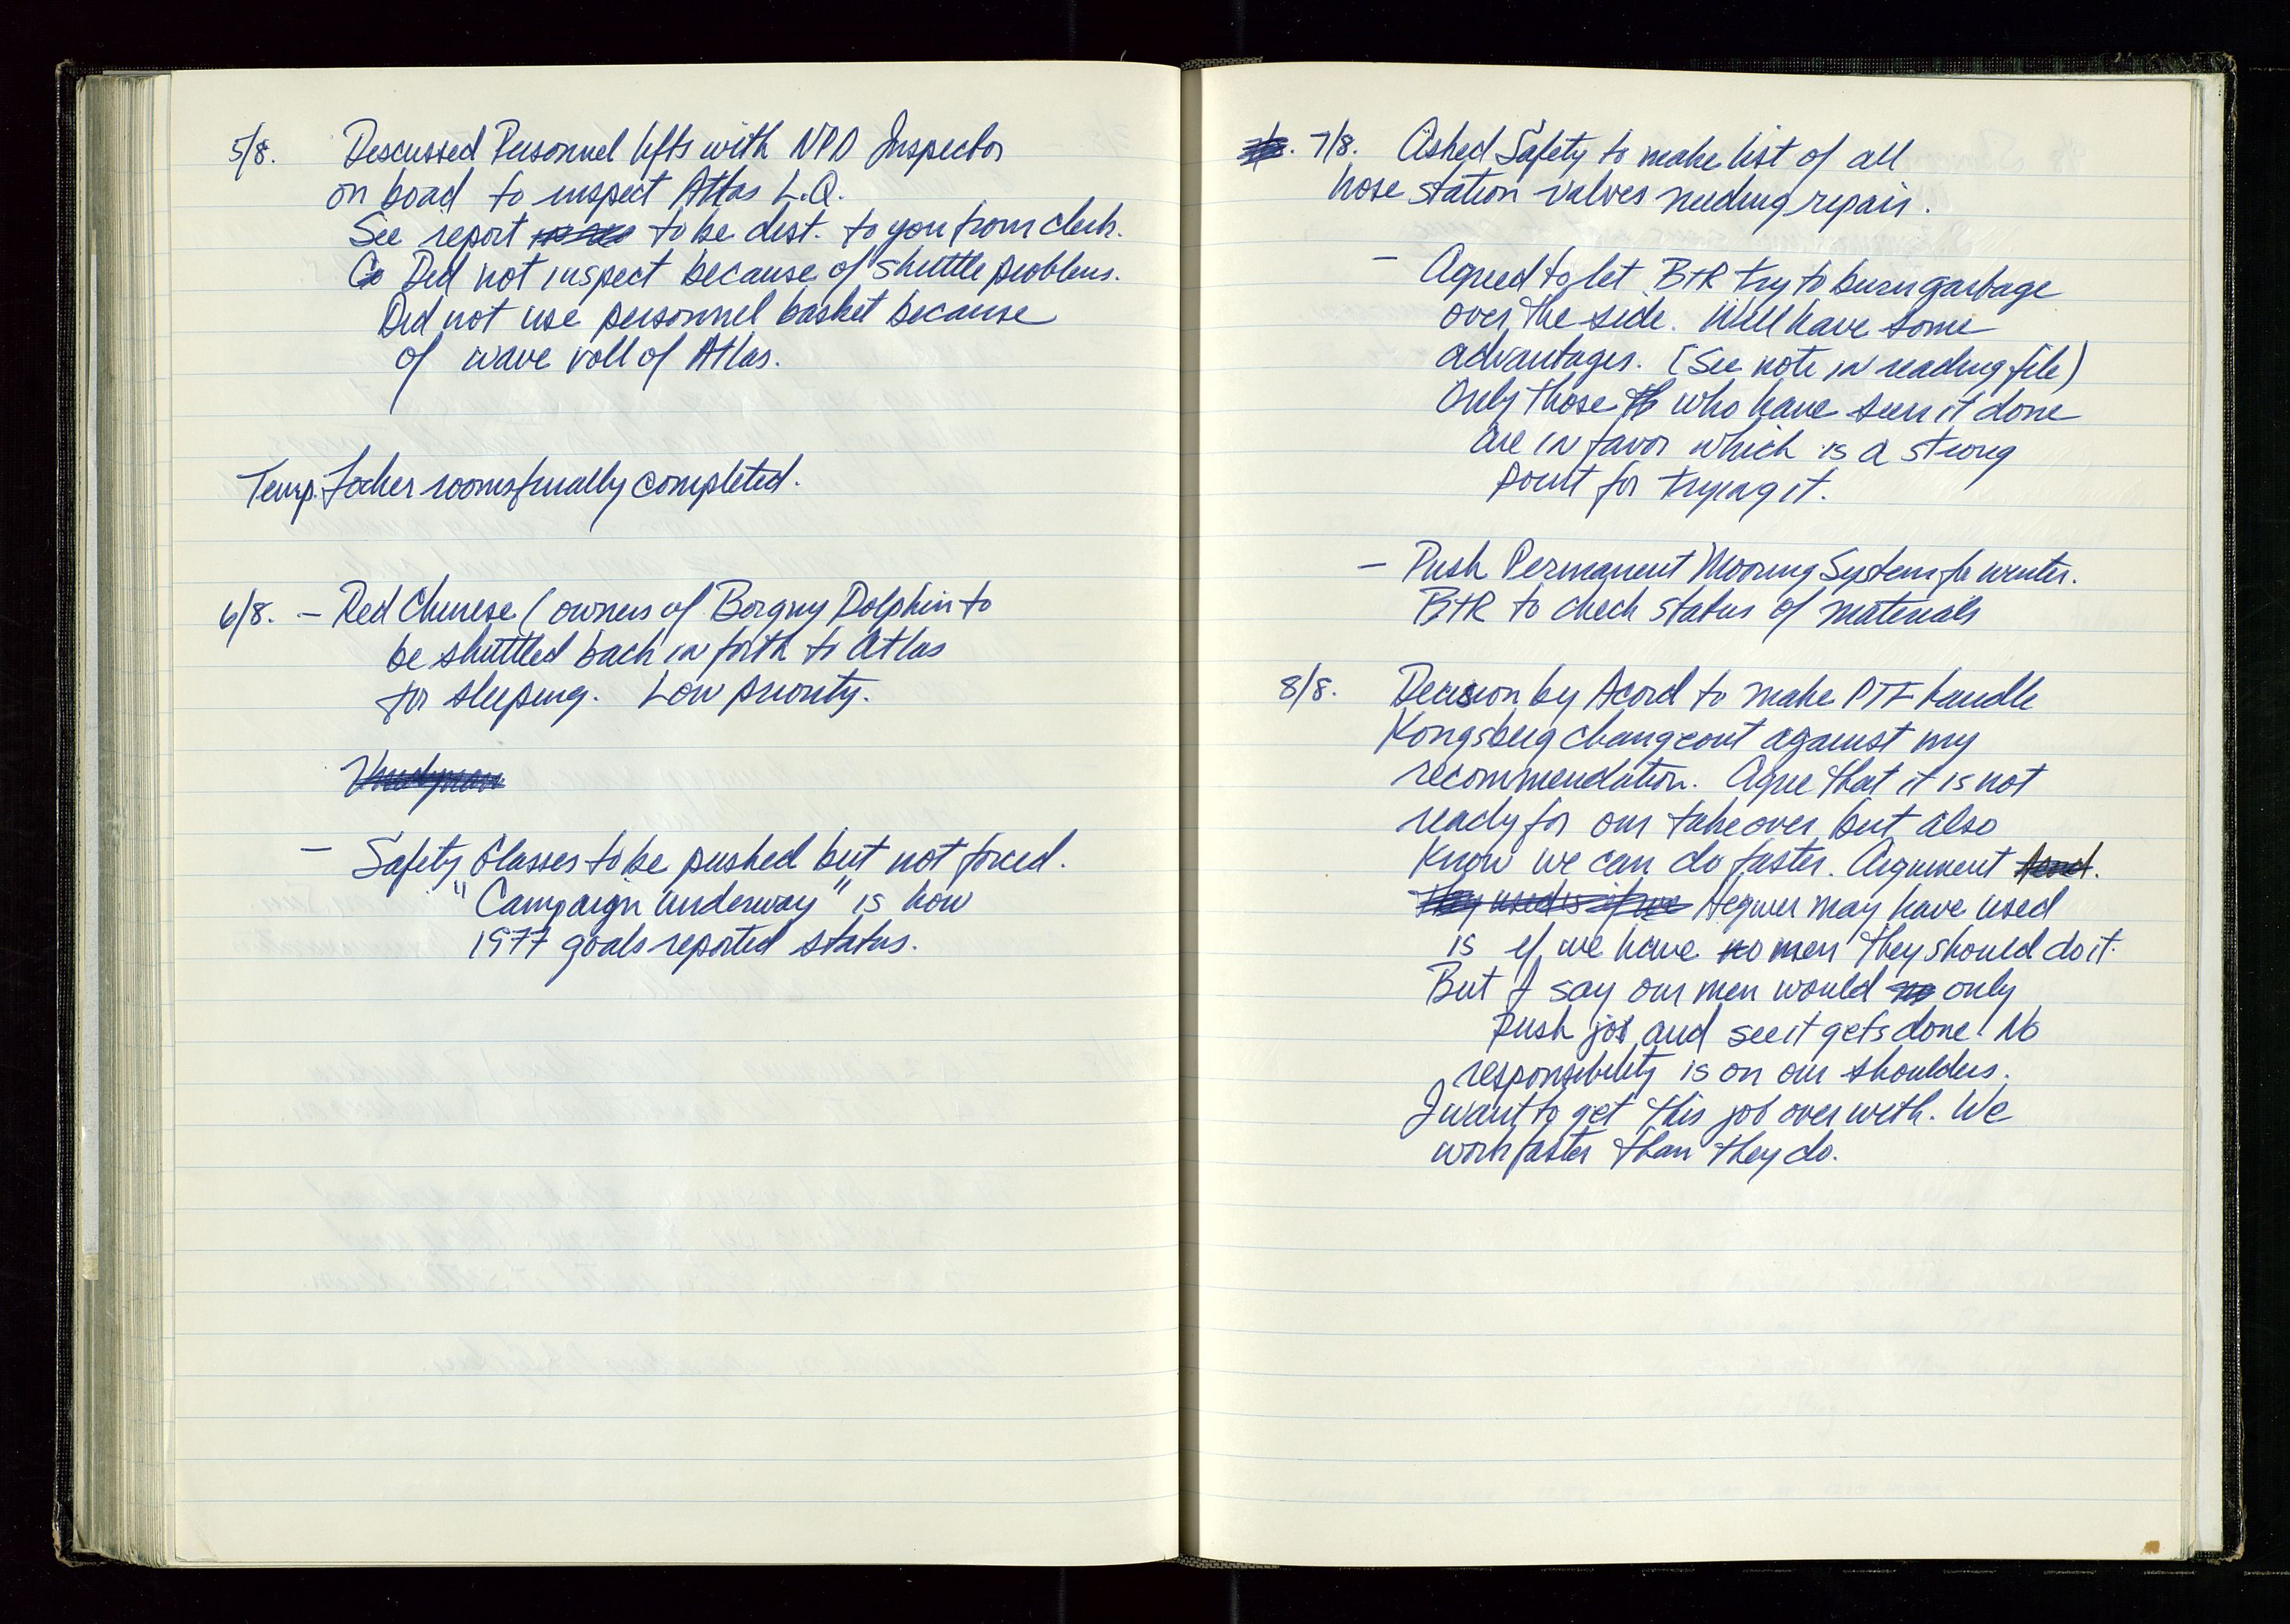 5/8. Discussed Personnel lifts with NPD Inspector
on boad to inspect Atlas L.Q.
See report to be dist. to you from clerk.
Did not inspect because of shuttle problems.
Did not use personnel basket because
of wave roll of Atlas.
Temp. Locker rooms finally completed.
6/8. – Red Chinese (owners of Borgny Dolphin to
be shuttled back in forth to Atlas
for sleeping. Low priority.
– Safety Glasses to be pushed but not forced.
"Campaign underway" is how
1977 goals reported status.
7/8. Asked Safety to make list of all
hose station valves needing repair.
– Agreed to let B+R try to burn garbage
over the side. Will have some
advantages. (See note in reading file)
Only those who have seen it done
are in favor which is a strong
point for trying it.
– Push Permanent Mooring System for winter.
B+R to check status of materials
8/8. Decision by Acord to make PTF handle
Kongsberg changeout against my
recommendation. Agree that it is not
ready for our takeover but also
know we can do faster. Argument
may have used
is if we have no men they should do it.
But I say our men would only
push job and see it gets done. No
responsibility is on our shoulders.
I want to get this job over with. We
work faster than they do.